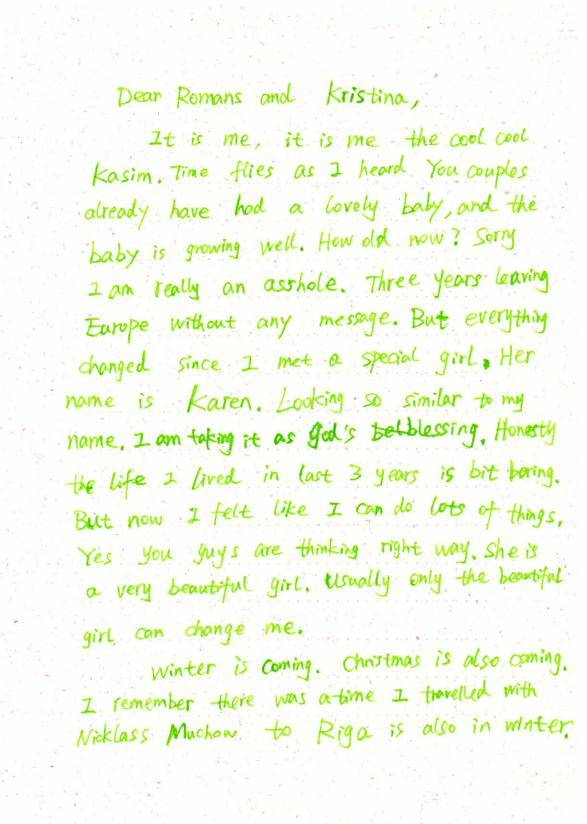 Dear Romans and Kristina,
It is me, it is me the cool cool
Kasim. Time flies as I heard You couples
already have had a lovely baby, and the
baby is growing well. How old now? Sorry
I am really an asshole. Three years leaving
Europe without any message. But everything
changed since I met a special girl. Her
name is Karen. Looking so similar to my
name. I am taking it as god's blessing. Honestly
the life I lived in last 3 years is bit boring.
But now I felt like I can do lots of things.
Yes you guys are thinking right way. She is
a very beautiful girl. Usually only the beautiful
girl can change me.
Winter is coming. Christmas is also coming.
I remember there was a time I travelled with
Nicklass Muchow to Riga is also in winter.